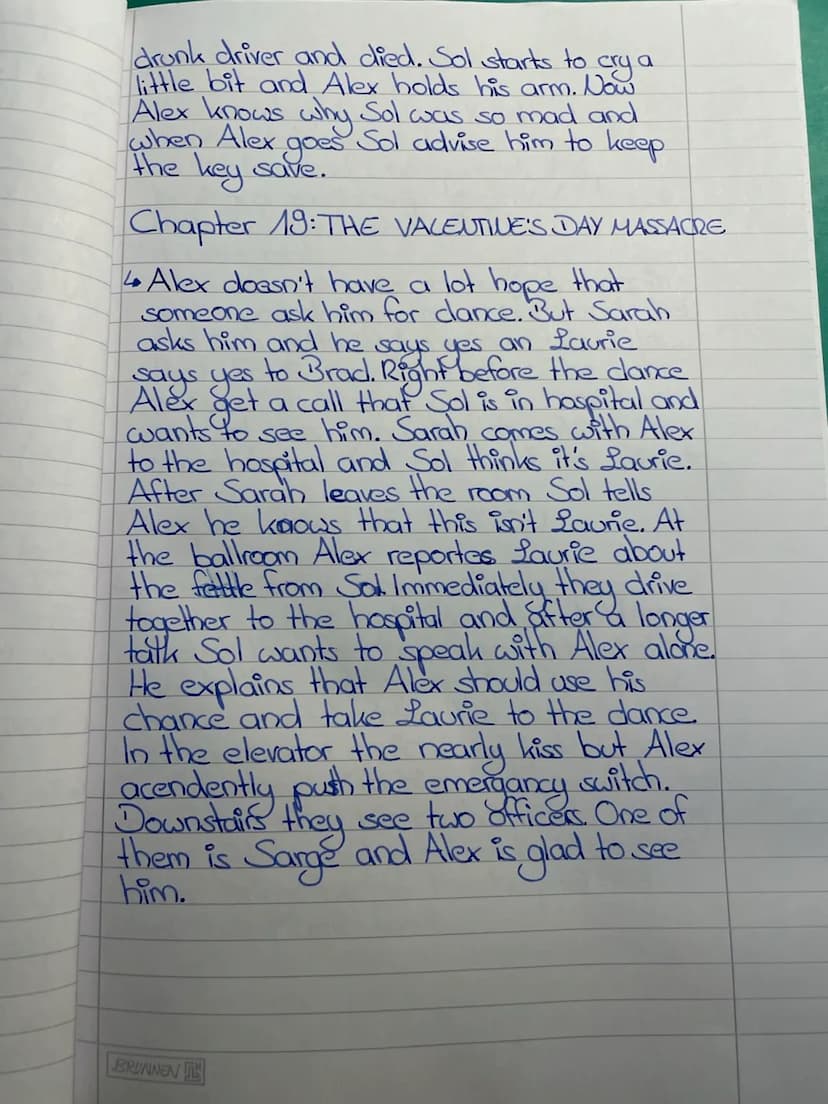 drunk driver and died. Sol starts to cry a
little bit and Alex holds his arm. Now
Alex knows why Sol was so mad and
when Alex goes Sol advise him to keep
the key save.
Chapter 19: THE VALENTINE'S DAY MASSACRE
↳ Alex doesn't have a lot hope that
someone ask him for dance. But Sarah
asks him and he says yes an Laurie
says yes to Brad. Right before the dance
Alex get a call that Sol is in hospital and
wants to see him. Sarah comes with Alex
to the hospital and Sol thinks it's Laurie.
After Sarah leaves the room Sol tells
Alex he knows that this isn't Laurie. At
the ballroom Alex reportes Laurie about
the from Sol. Immediately they drive
together to the hospital and after a longer
talk Sol wants to speak with Alex alone.
He explains that Alex should use his
chance and take Laurie to the dance.
In the elevator the nearly kiss but Alex
acendently push the emergancy switch.
Downstairs they see two officer. One of
them is Sarge and Alex is glad to see
him.
BRUNNEN